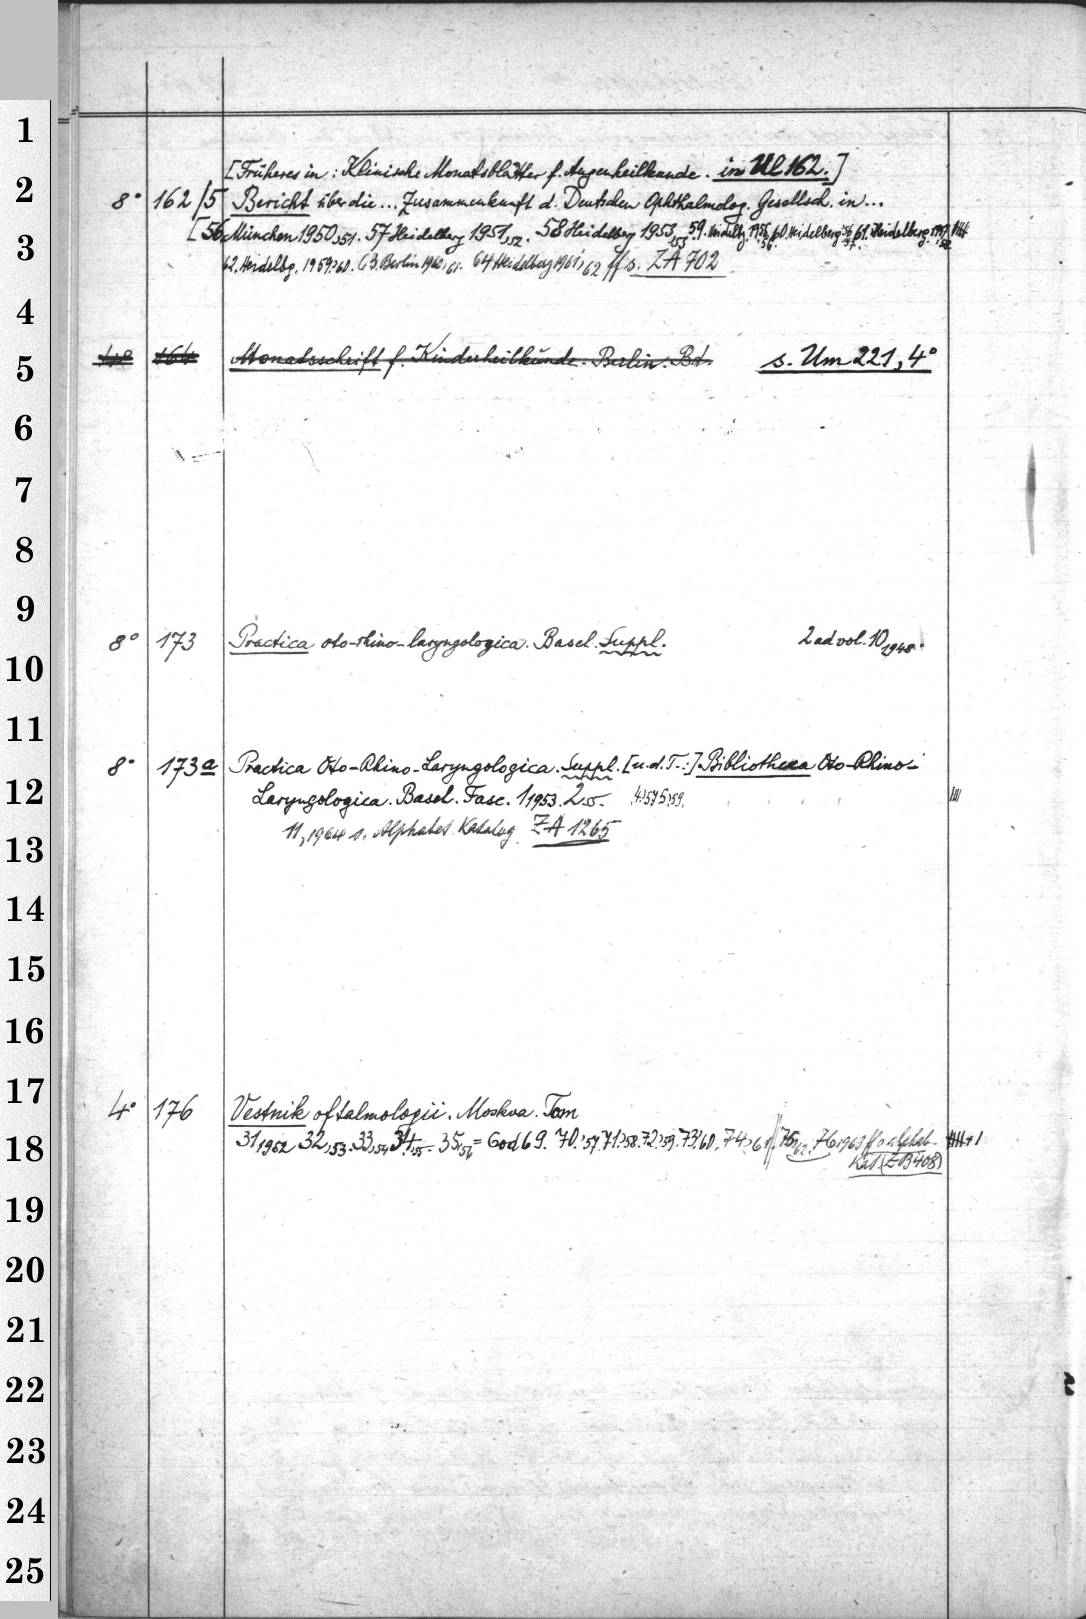 [Früheres in: Klinische Monatsblätter f. Augenheilkunde. in Ul 162.]
8° 162/5 Bericht über die... Zusammenkunft d. Deutschen Ophthalmolog. Gesellsch. in...
[56 München 1950,51. 57 Heidelberg 1951,52. 58 Heidelberg 1953,53. 59. Heidelbg. 1955,56. 60. Heidelberg 56,57. 61. Heidelberg 1957,58
62. Heidelbg. 1959,60. 63. Berlin 1960,61. 64 Heidelberg 1961,62 ff s. ZA 702
4° 164 Monatsschrift f. Kinderheilkunde. Berlin. Bd. s. Um 221, 4°
8° 173 Practica oto-rhino-laryngologica. Basel. Suppl. 2 ad vol. 10,1948.
8° 173a Practica Oto-Rhino-Laryngologica. Suppl. [u.d.T.:] Bibliotheca Oto-Rhino-
Laryngologica. Basel. Fasc. 1,1953. 2,55. 4,57 5,59.
11, 1964 s. Alphabet. Katalog ZA 1265
4° 176 Vestnik oftalmologii. Moskva. Tom
31,1952 32,53. 33,54 34,55. 35,56 = God 69. 70,57. 71,58. 72,59. 73,60. 74,61. 75,62. 76,1963 ff s. alphab.
Kat. (ZB 408)
1
2
3
4
5
6
7
8
9
10
11
12
13
14
15
16
17
18
19
20
21
22
23
24
25